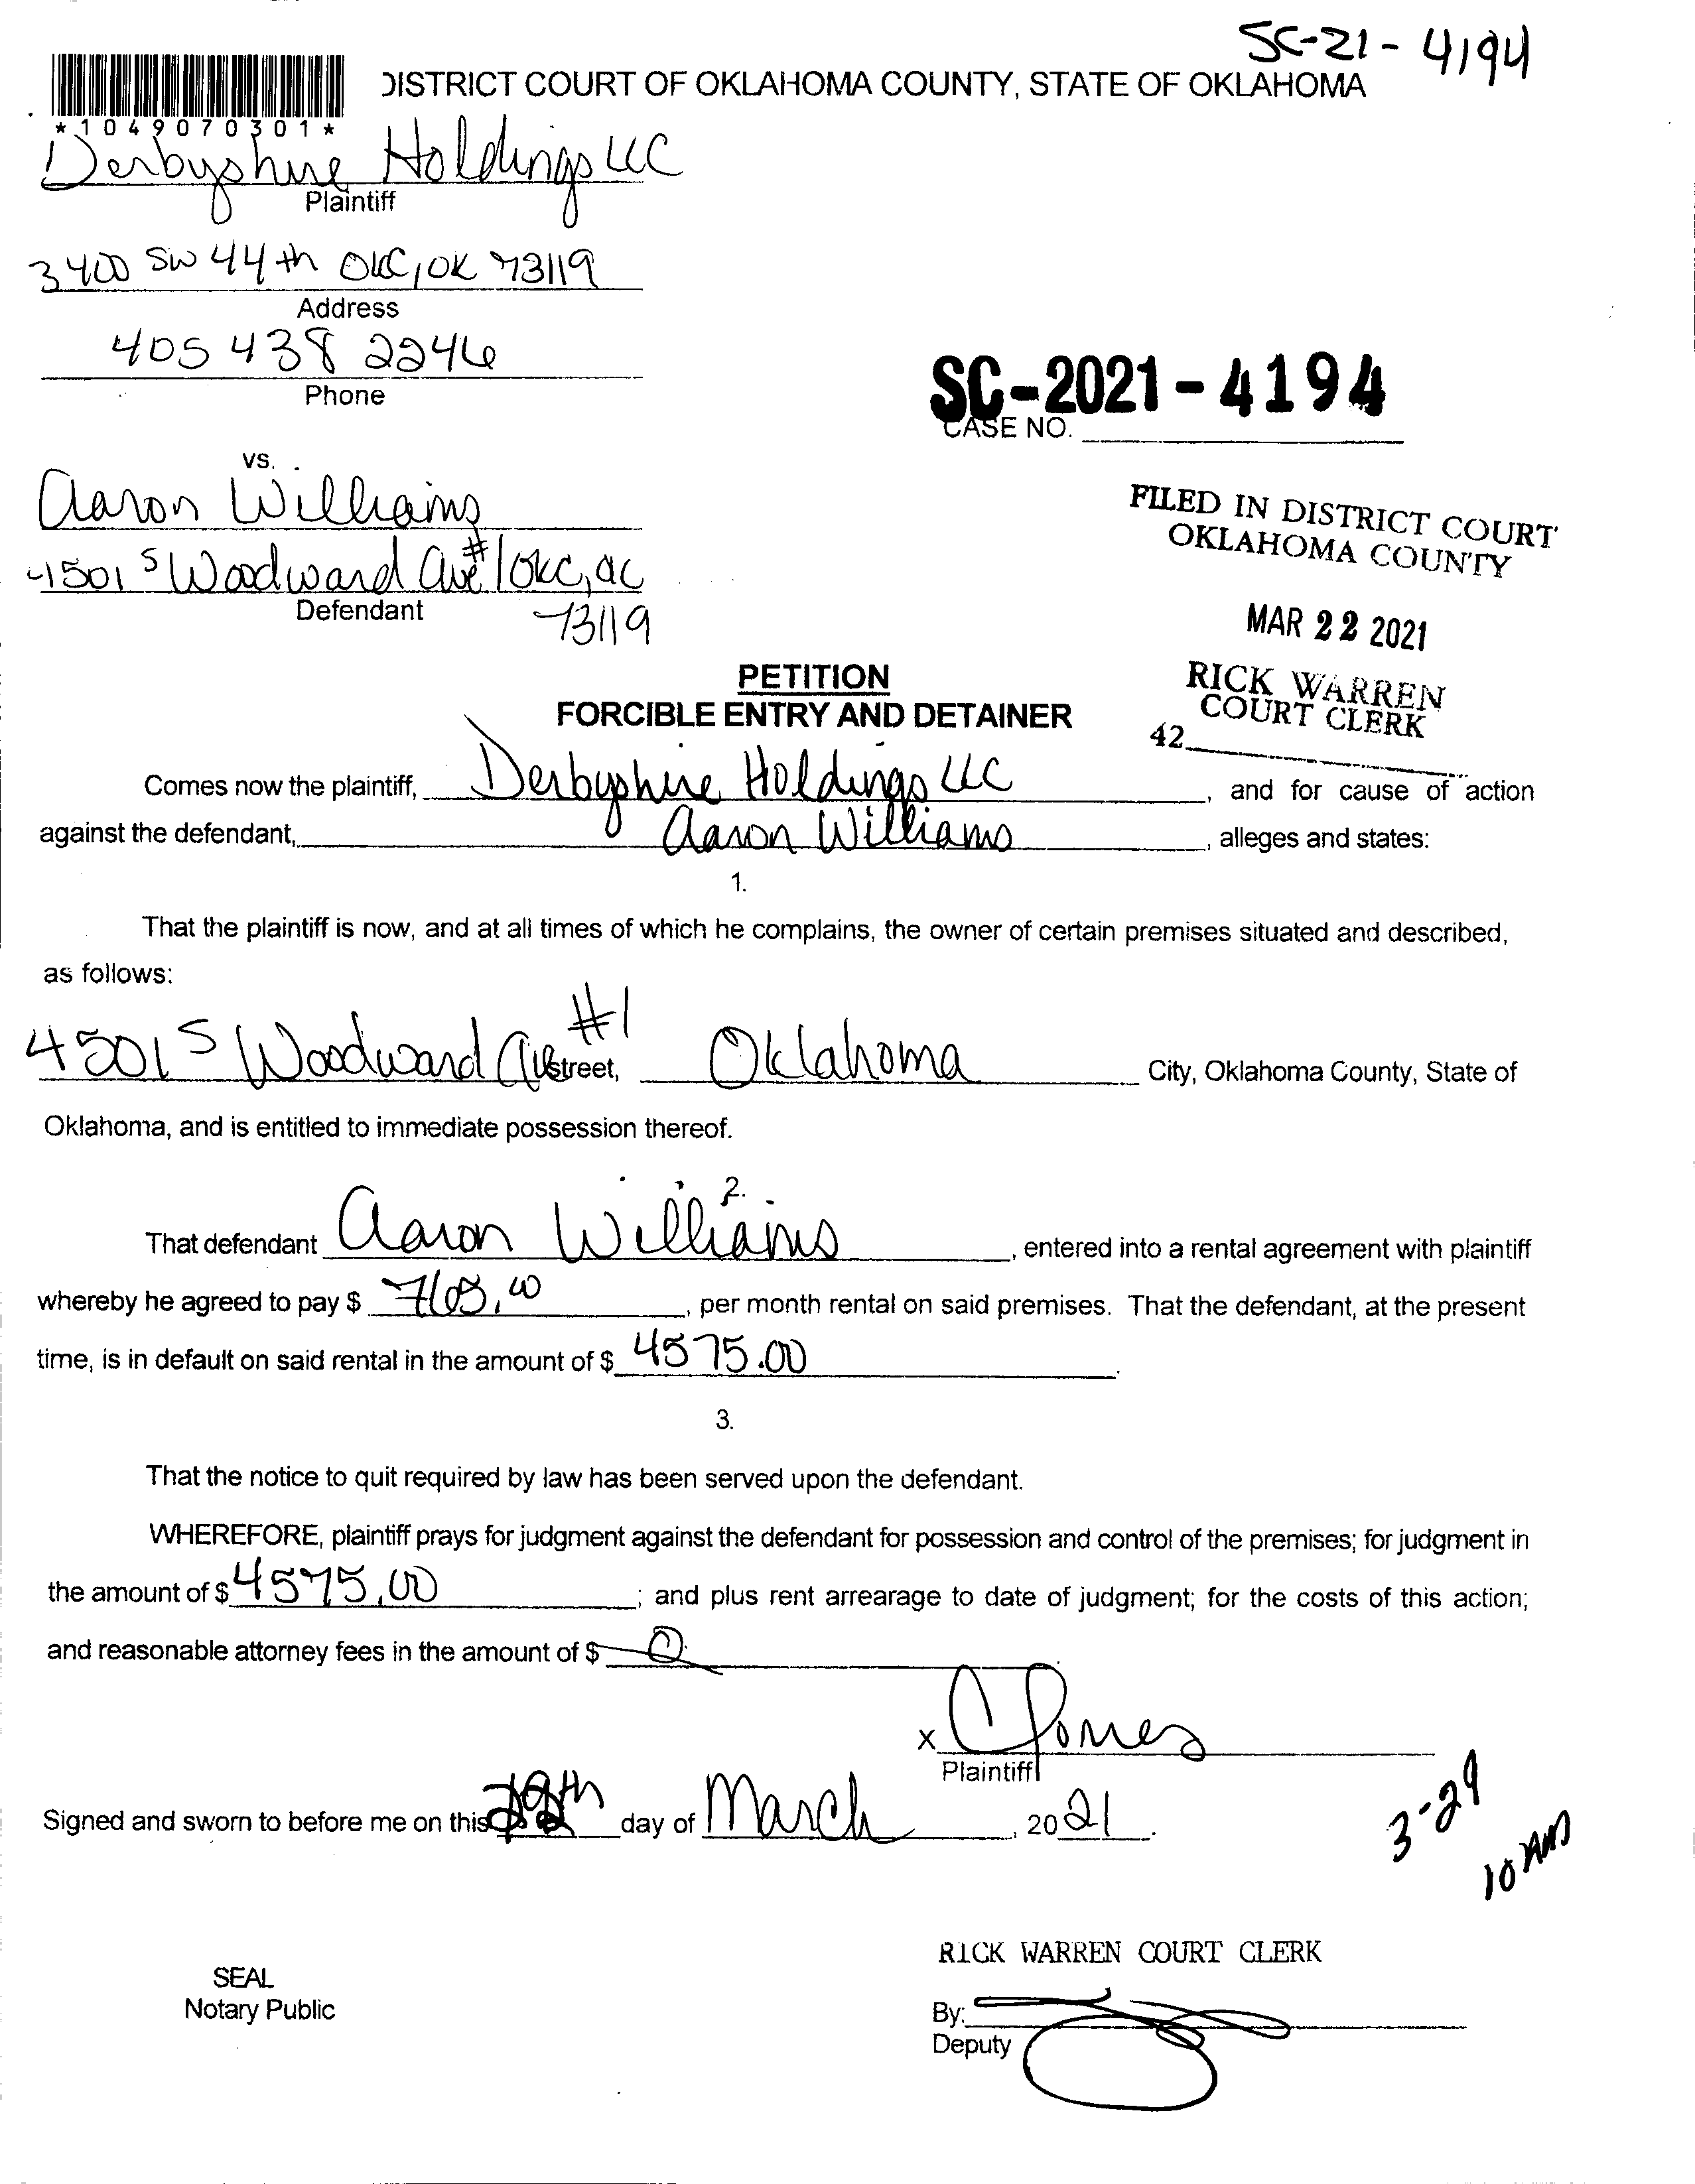 SC-21-4194
DISTRICT COURT OF OKLAHOMA COUNTY, STATE OF OKLAHOMA
*1049070301*
Derbyshire Holdings LLC
Plaintiff
3400 SW 44th OKC, OK 73119
Address
405 438 2246
Phone
SC-2021-4194
CASE NO.
vs.
Aaron Williams
4501 S Woodward Ave #1 OKC, OK
Defendant 73119
FILED IN DISTRICT COURT
OKLAHOMA COUNTY
MAR 22 2021
RICK WARREN
COURT CLERK
42
PETITION
FORCIBLE ENTRY AND DETAINER
Comes now the plaintiff, Derbyshire Holdings LLC, and for cause of action
against the defendant, Aaron Williams, alleges and states:
1.
That the plaintiff is now, and at all times of which he complains, the owner of certain premises situated and described,
as follows:
4501 S Woodward Ave #1 Street, Oklahoma City, Oklahoma County, State of
Oklahoma, and is entitled to immediate possession thereof.
2.
That defendant Aaron Williams, entered into a rental agreement with plaintiff
whereby he agreed to pay $, per month rental on said premises. That the defendant, at the present
time, is in default on said rental in the amount of $ 4575.00.
3.
That the notice to quit required by law has been served upon the defendant.
WHEREFORE, plaintiff prays for judgment against the defendant for possession and control of the premises; for judgment in
the amount of $ 4575.00; and plus rent arrearage to date of judgment; for the costs of this action;
and reasonable attorney fees in the amount of $ 0
X
Plaintiff
Signed and sworn to before me on this day of March, 2021.
3-29
10 AM
RICK WARREN COURT CLERK
SEAL
Notary Public
By:
Deputy